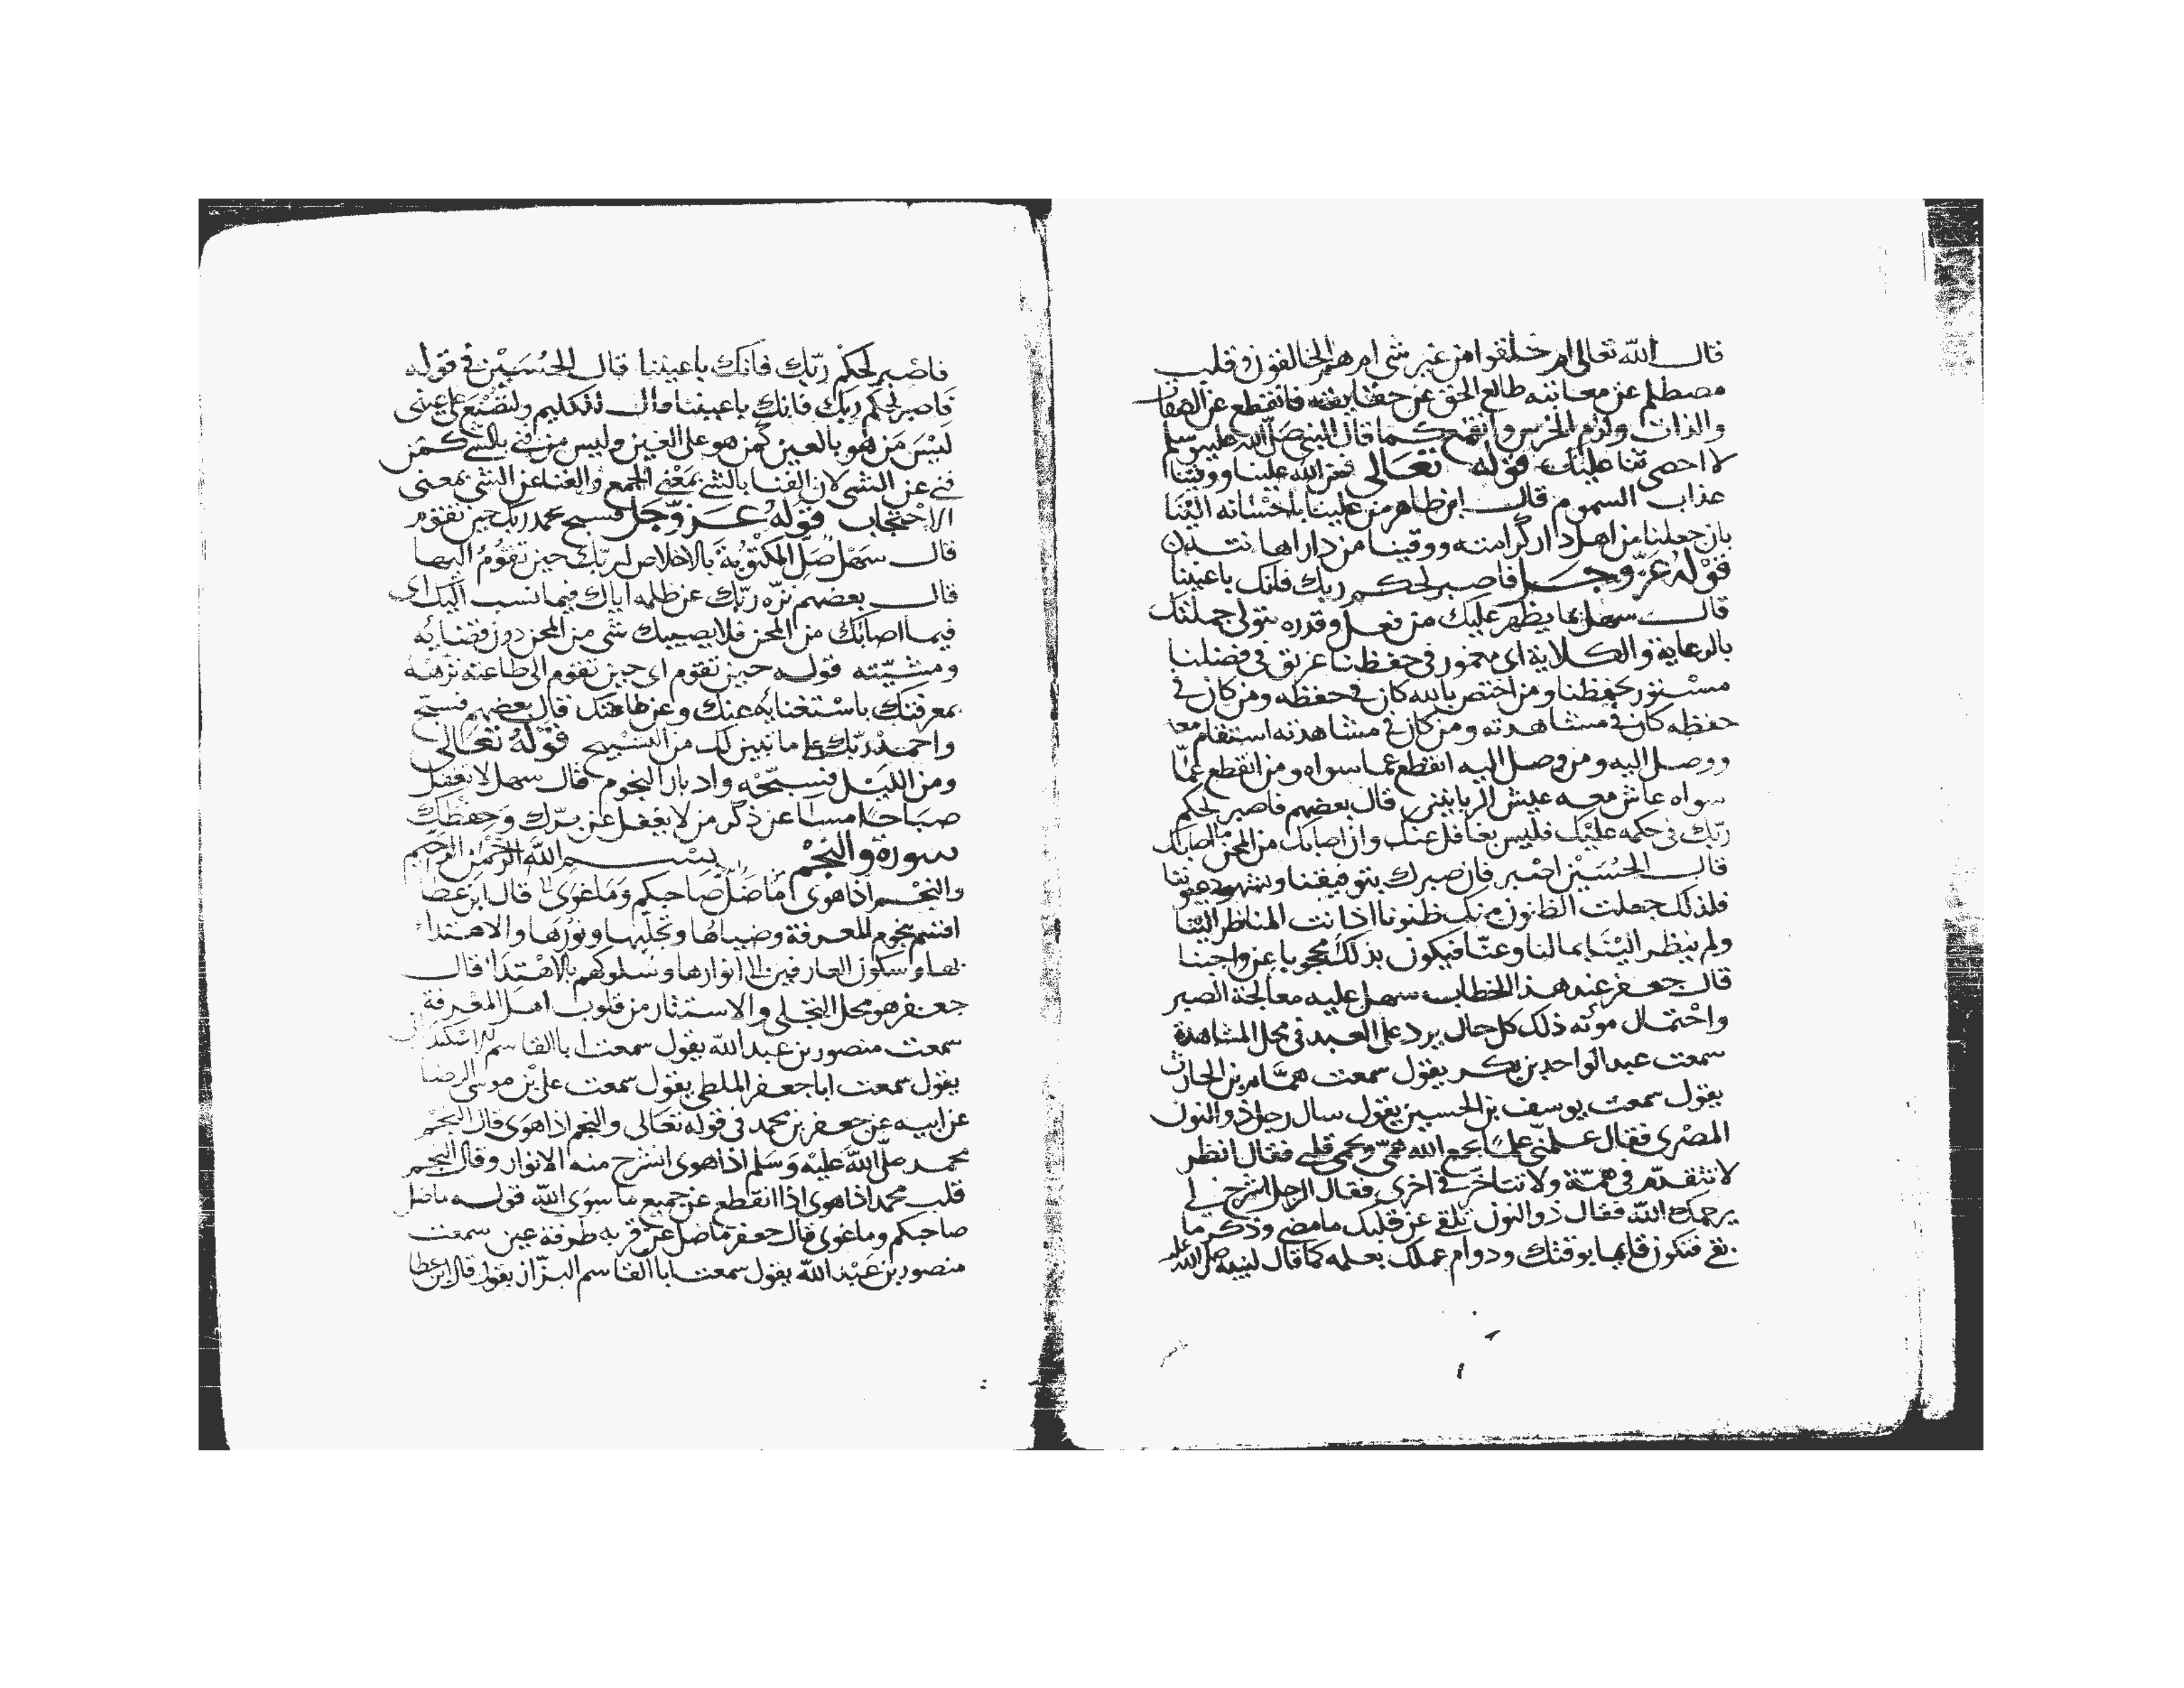 قال الله تعالى ام خلقوا من غير شي ام هم الخالقون وقلب
مصطلم عن معاينته طالع الحق عن حقايقه فانقطع عن الصفات
والذات ولزم الخرس وانقمع كما قال النبي صلى الله عليه وسلم
لا احصى ثنا عليك قوله تعالى فمن الله علينا ووقينا
عذاب السموم قال ابن طاهر من علينا باحسانه الينا
بان جعلنا من اهل دار كرامته ووقينا من دار اها
قوله عز وجل فاصبر لحكم ربك فانك باعيننا
قال سهل بما يظهر عليك من فعل وقدره نتولى جملتك
بالرعاية والكلاية اى مغمور فى حفظنا غريق فى فضلنا
مستور بحفظنا ومن اختص بالله كان فى حفظه ومن كان فى
حفظه كان فى مشاهدته ومن كان فى مشاهدته استقام معه
ووصل اليه ومن وصل اليه انقطع عما سواه ومن انقطع عما
سواه عاش معه عيش الربانيين قال بعضهم فاصبر لحكم
ربك فى حكمه عليك فليس بغافل عنك وان اصابك من المحن ما اصابك
قال الحسين اصبر فان صبرك بتوفيقنا وبشهود عيوننا
فلذلك جعلت الظانون منك ظنونا اذا نت المناظر الينا
ولم ينظر الينا بما لنا وعنا فيكون بذلك محجوبا عن واجبنا
قال جعفر عند هذا الخطاب سهل عليه معالجة الصبر
واحتمال مؤنه ذلك كل حال يرد على العبد فى محل المشاهدة
سمعت عبد الواحد بن بكر يقول سمعت همام بن الحارث
يقول سمعت يوسف بن الحسين يقول سال رجل ذو النون
المصرى فقال علمنى علما يجمع الله همى ويحمى قلبى فقال انظر
لا تتقدم فى همة ولا تتاخر فى اخرى فقال الرجل اشرح لى
يرحمك الله فقال ذو النون تلقى عن قلبك ما مضى وذكر ما
بقى فتكون قايما بوقتك ودوام عملك بعلمه كما قال لنبيه صلى الله عليه
فاصبر لحكم ربك فانك باعيننا قال الحسين فى قوله
فاصبر لحكم ربك فانك باعيننا وقال للكليم ولتصنع على عينى
ليس من هو بالعين كمن هو على العين وليس من فنى بالشى كمن
فنى عن الشى لان الفنا بالشى بمعنى الجمع والفنا عن الشى بمعنى
الاحتجاب قوله عز وجل فسبح بحمد ربك حين تقوم
قال سهل صل المكتوبة بالاخلاص لربك حين تقوم اليها
قال بعضهم نزه ربك عن ظلمه اياك فيما نسب اليك اى
فيما اصابك من المحن فلا يصيبك شى من المحن دون قضائه
ومشيته قوله حين تقوم اى حين تقوم الى طاعته نزهه
بمعرفتك باستغنائه عنك وعن طاعتك قال بعضهم فسبح
واحمد ربك على ما تبين لك من التسبيح قوله تعالى
ومن الليل فسبحه وادبار النجوم قال سهل لا تغفل
صباحا ومسا عن ذكر من لا يغفل عن برك وحفظك
سورة والنجم بسم الله الرحمن الرحيم
والنجم اذا هوى ما ضل صاحبكم وما غوى قال ابن عطا
اقسم بنجوم المعرفة وضياها وتجليها ونورها والاهتداء
بها وسكون العارفين الى انوارها وسلوكهم بالاهتدا قال
جعفر هو محل التجلى والاستتار من قلوب اهل المعرفة
سمعت منصور بن عبد الله يقول سمعت ابا القاسم
يقول سمعت ابا جعفر الملطى يقول سمعت على بن موسى الرضا
عن ابيه عن جعفر بن محمد فى قوله تعالى والنجم اذا هوى قال النجم
محمد صلى الله عليه وسلم اذا هوى انشرح منه الانوار وقال النجم
قلب محمد اذا هوى اذا انقطع عن جميع ما سوى الله قوله ما ضل
صاحبكم وما غوى قال جعفر ما ضل عن قربه طرفة عين سمعت
منصور بن عبد الله يقول سمعت ابا القاسم البزاز يقول قال ابن عطا